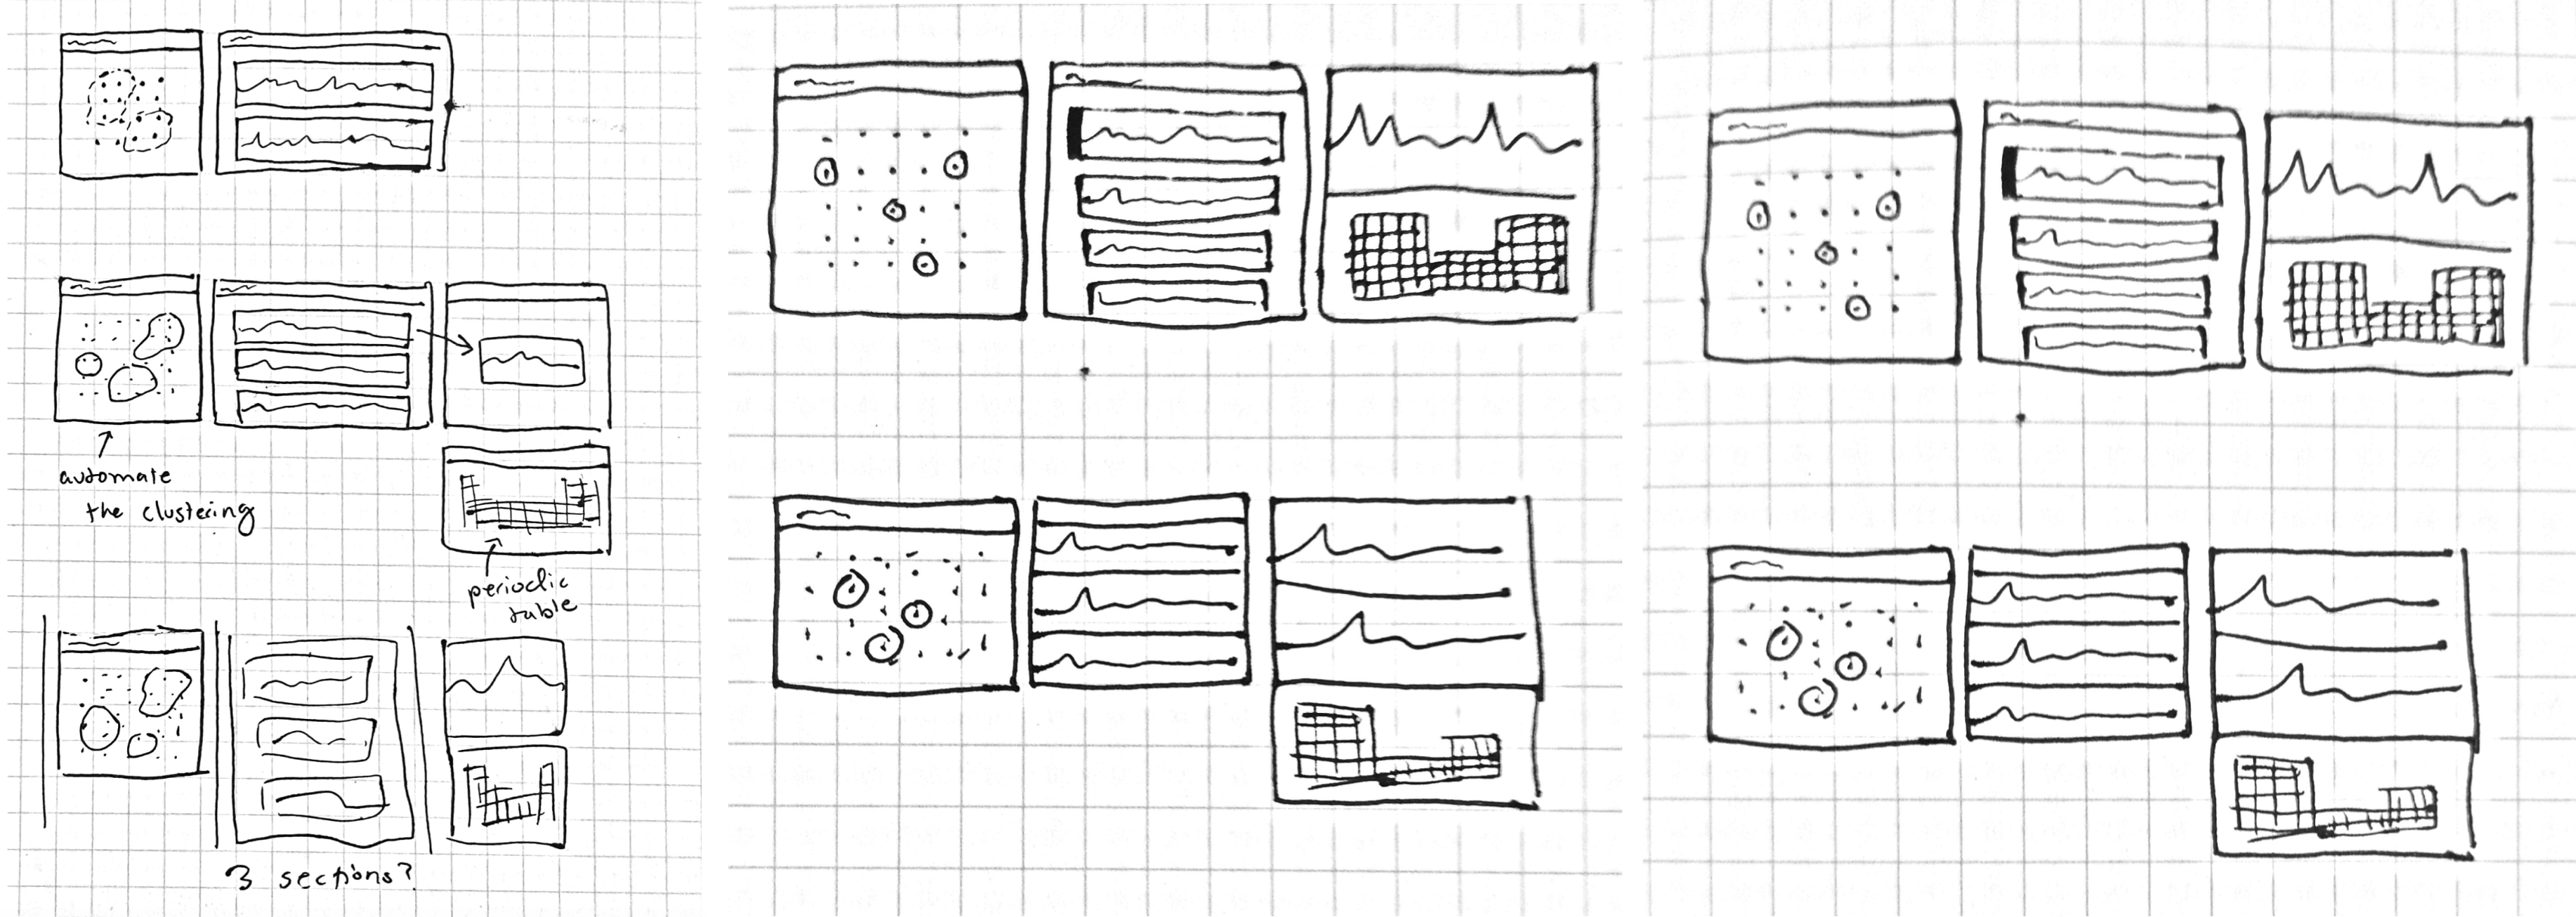 automate
the clustering
periodic
table
3 sections?